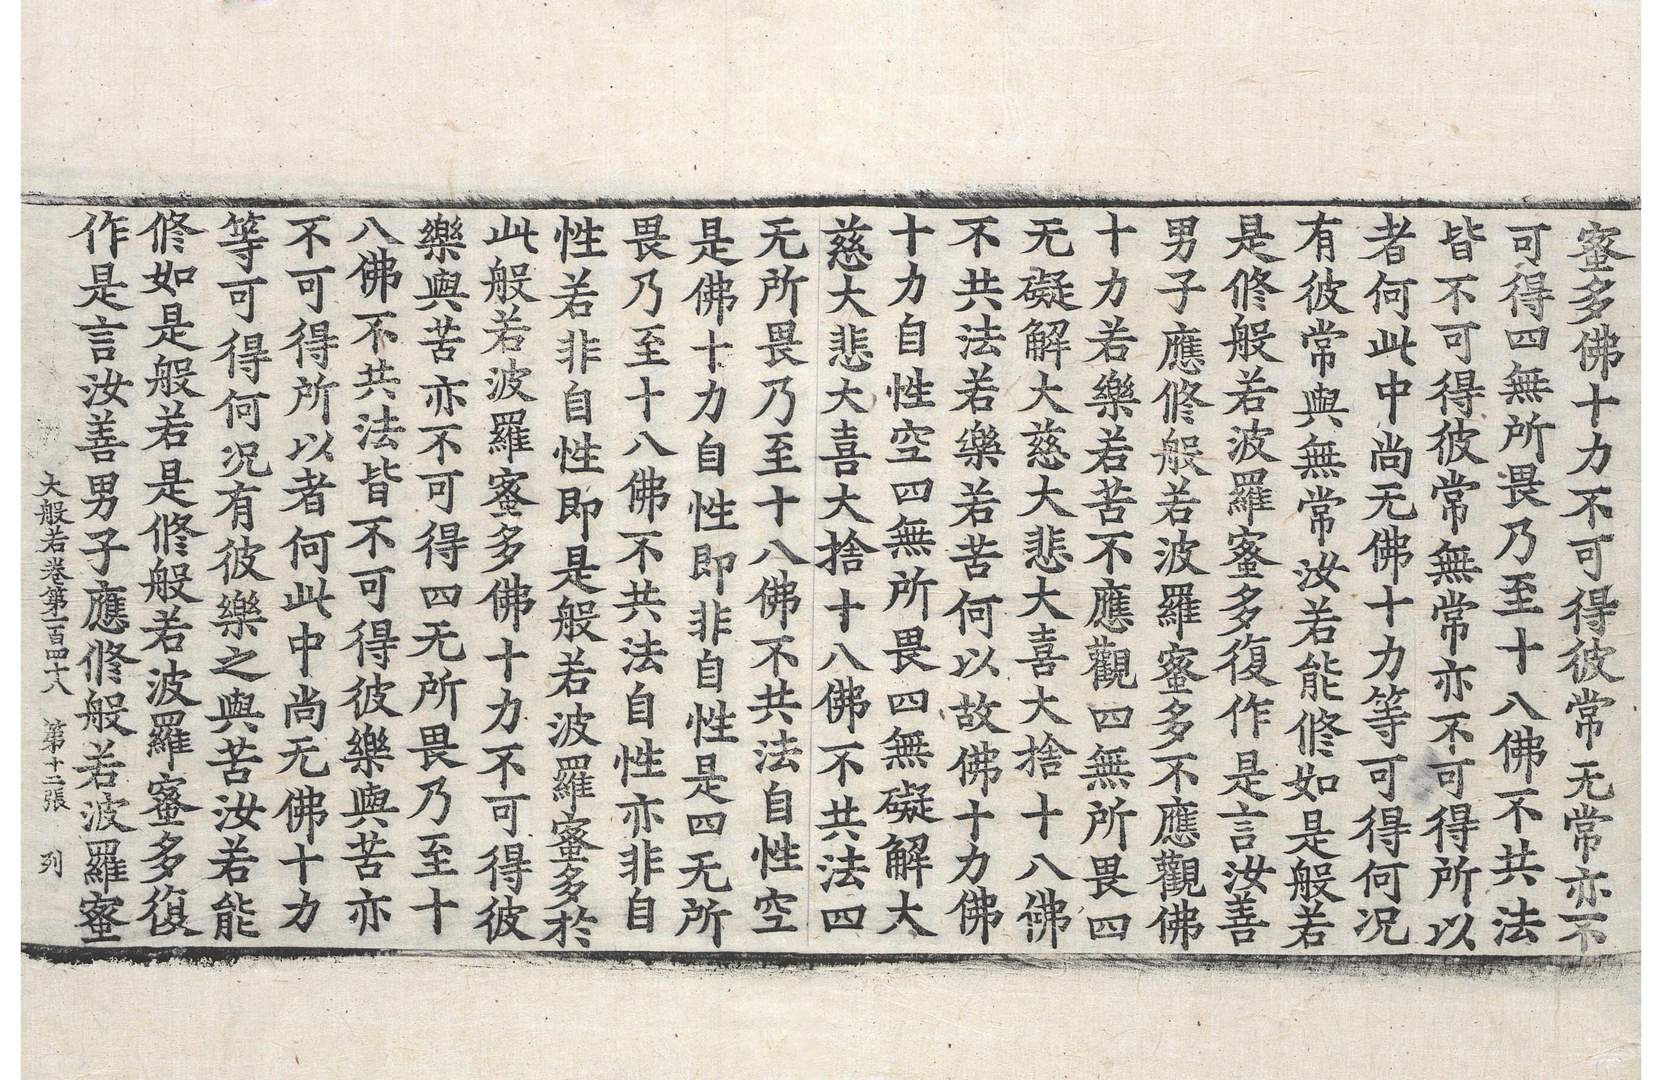 蜜多佛十力不可得彼常无常亦不
可得四無所畏乃至十八佛不共法
皆不可得彼常無常亦不可得所以
者何此中尚无佛十力等可得何况
有彼常與無常汝若能修如是般若
是修般若波羅蜜多復作是言汝善
男子應修般若波羅蜜多不應觀佛
十力若樂若苦不應觀四無所畏四
无礙解大慈大悲大喜大捨十八佛
不共法若樂若苦何以故佛十力佛
十力自性空四無所畏四無礙解大
慈大悲大喜大捨十八佛不共法四
无所畏乃至十八佛不共法自性空
是佛十力自性即非自性是四无所
畏乃至十八佛不共法自性亦非自
性若非自性即是般若波羅蜜多於
此般若波羅蜜多佛十力不可得彼
樂與苦亦不可得四无所畏乃至十
八佛不共法皆不可得彼樂與苦亦
不可得所以者何此中尚无佛十力
等可得何况有彼樂之與苦汝若能
修如是般若是修般若波羅蜜多復
作是言汝善男子應修般若波羅蜜
大般若卷第一百四十八 第十二張 列